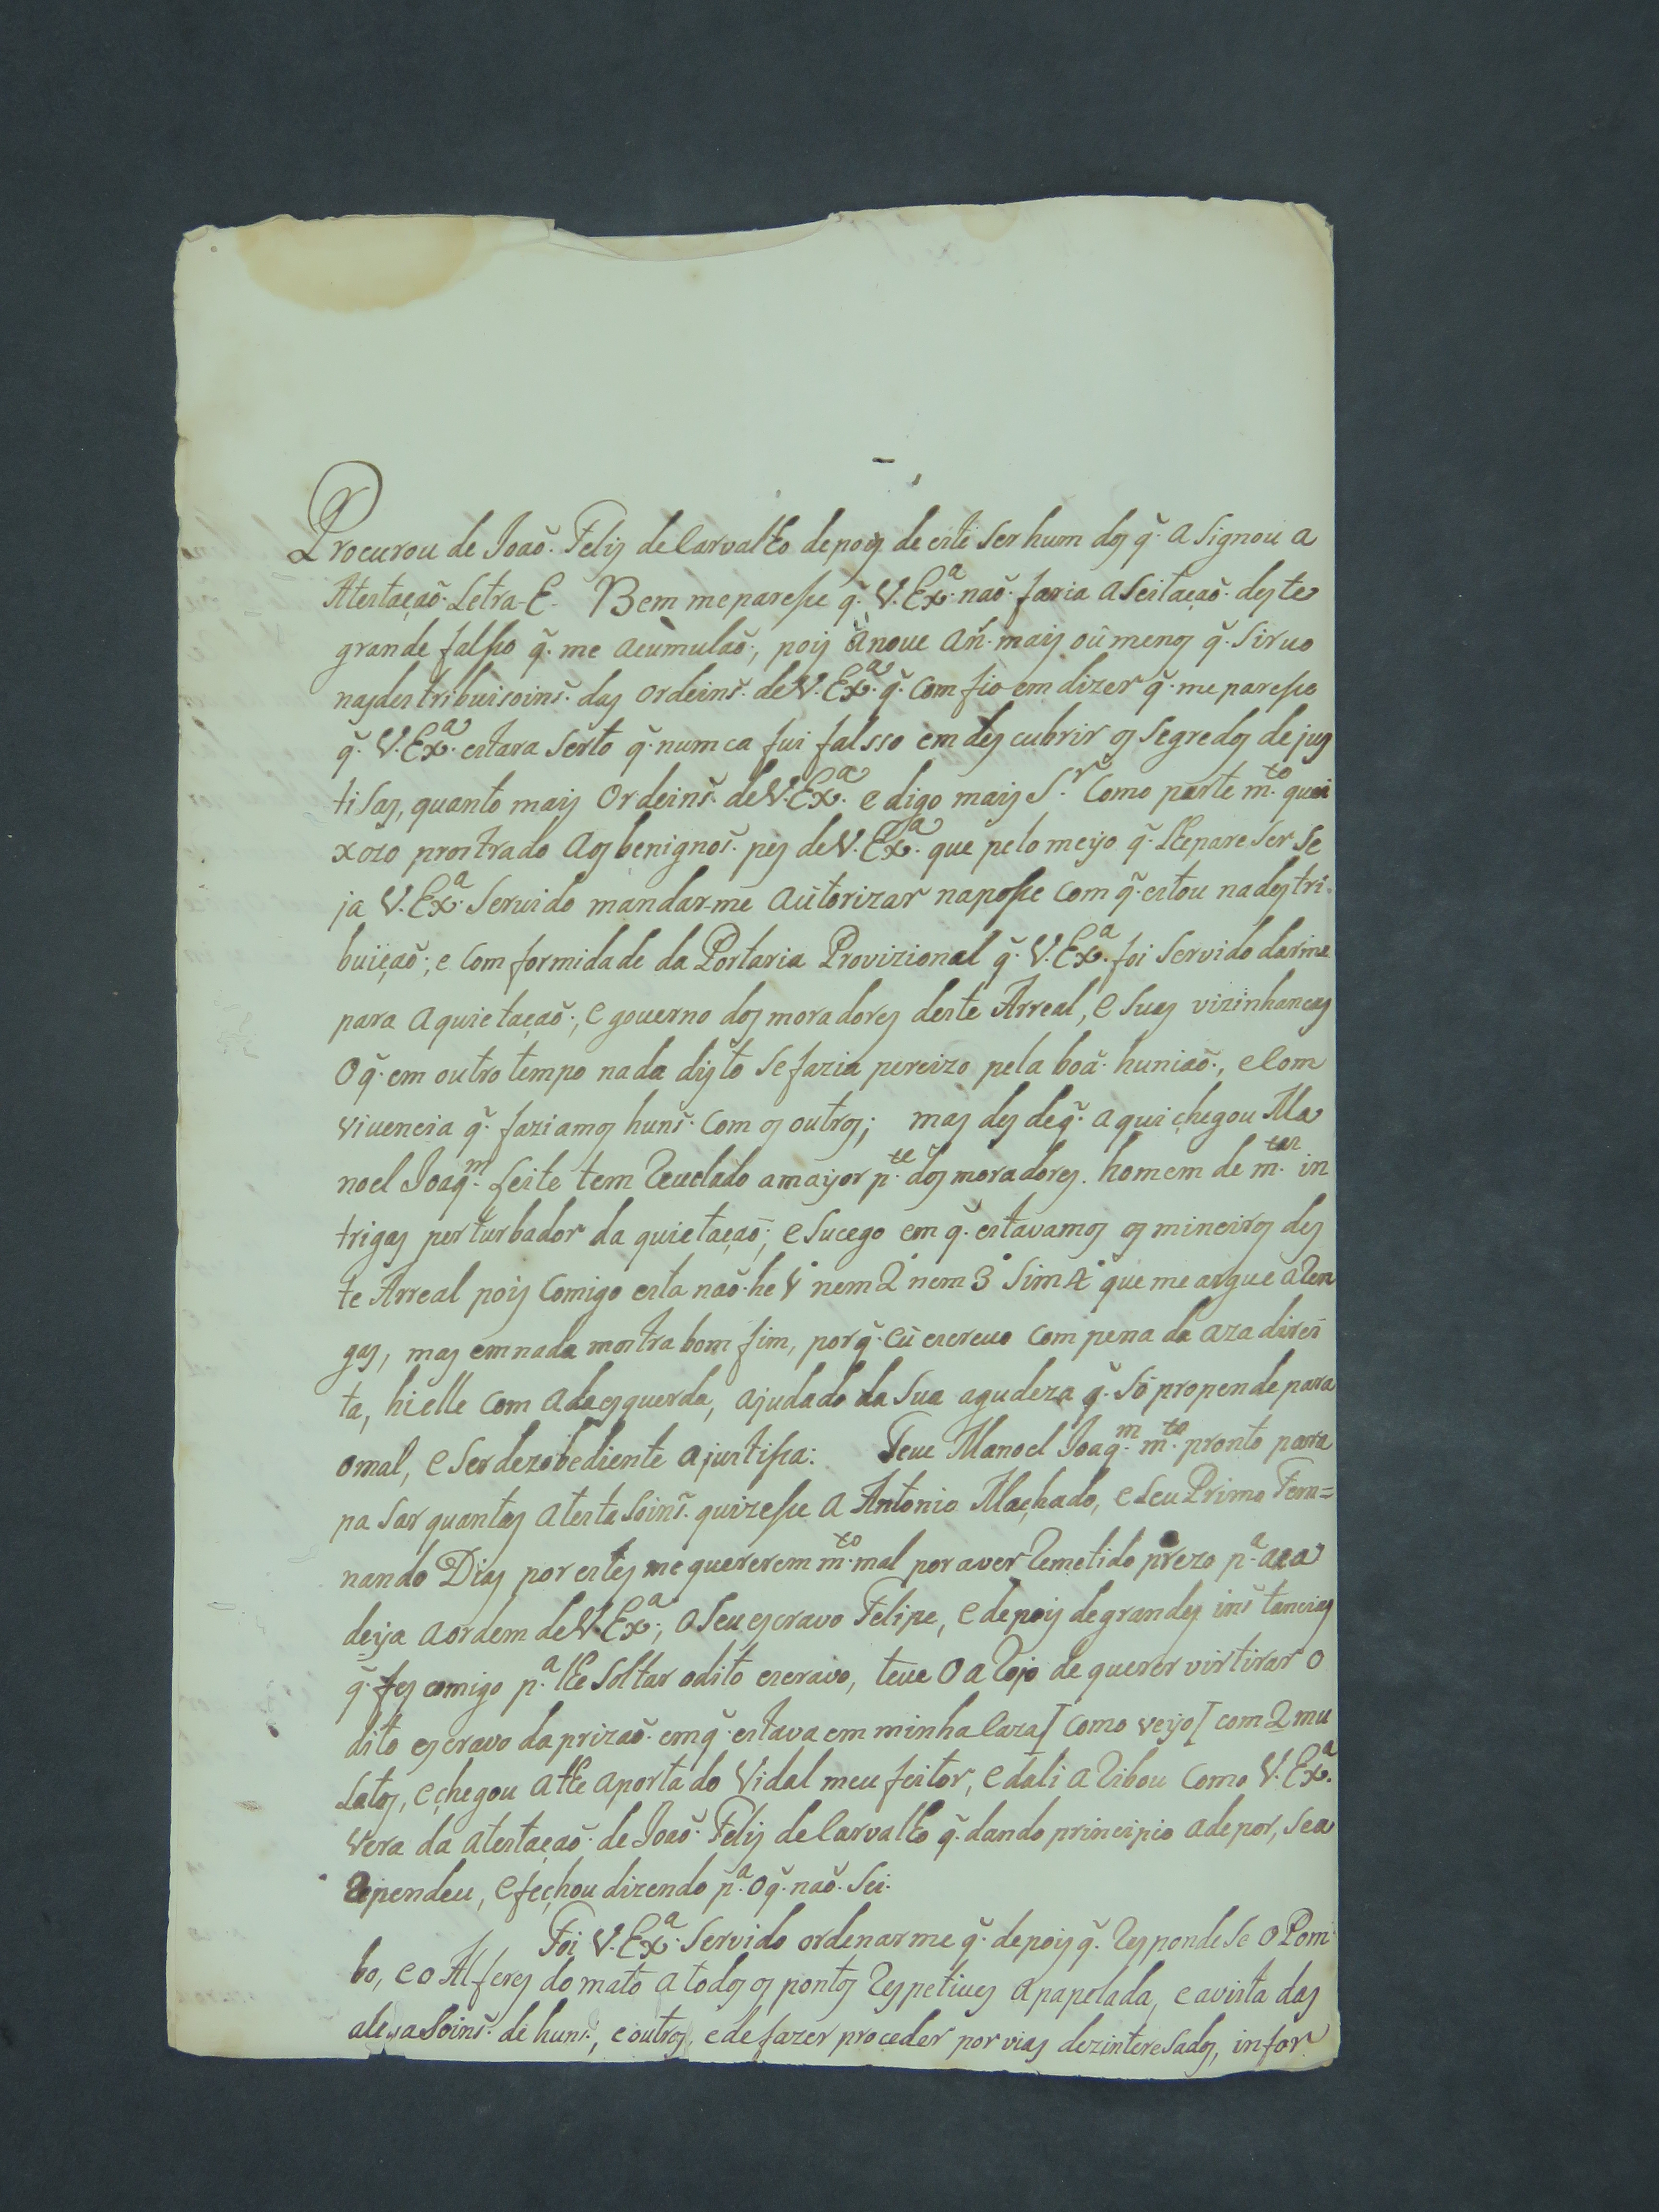 Procurou de Joaõ. Felis de Carvalho depois de este ser hum dos q̃. a Signou a
Atestaçaõ. Letra-E. Bem me paresse q̃. V. Exª. naõ. faria aseitaçaõ. deste
grande falsso q̃. me acumulaõ., pois ánoue an̄. mais oũ menos q̃. Siruo
nasdestribuisoins̃. das ordeins̃. de V. Exª. q̃. Com fio em dizer q̃. me paresse
q̃. V. Exª. estara Serto q̃. numca fui falsso em des cubrir os Segredos de jus
tisas, quanto mais Ordeins̃. de V. Exª. e digo mais S.r Como parte m.to quei
xozo prostrado aos benignos̃. pes de V. Exª. que pelo meyo q̃. lhe pareser Se
ja V. Exª. Seruido mandar-me autorizar na posse com q̃. estou nadestri-
buiçaõ; e Com formidade da Portaria Provizional q̃. V. Exª. foi Servido darme
para aquietaçaõ., e gouerno dos moradores deste Arreal, e Suas vizinhancas
Oq̃. em outro tempo nada disto Sefazia percizo pela boã. huniaõ., e Com
viuencia q̃. faziamos huns̃. Com os outros; mas des deq̃. aqui chegou Ma
noel Joaq.m Leite tem Reuelado amayor p.te dos moradores. homem de m.tas in
trigas perturbador da quietaçaõ; e Sucego em q̃. estavamos os mineiros des
te Arreal pois Comigo esta naõ. he 1º nem 2º nem 3º Sim 4º que me argue aren
gas, mas emnada mostra bom fim, porq̃. eũ escreuo Com pena da aza direi
ta, hielle Com adaesquerda, ajudado da Sua agudeza q̃. Só propende para
omal, e Ser dezobediente ajustissa: Teue Manoel Joaq.m m.to pronto para
pa Sar quantas atestasoins̃. quizesse a Antonio Machado, e Seu Primo Fern=
nando Dias por estes me quererem m.to mal por aver Remetido prezo p.ª aca
deya aordem de V. Exª., o Seu escravo Felipe, e depois de grandes ins̃tancias
q̃. fes comigo p.ª lhe Soltar odito escravo, teue o a Rojo de querer vir tirar o
dito escravo da prizaõ. emq̃. estava em minha Caza [ Como veyo [ com 2 mu
Latos, e chegou athe aporta do Vidal meu feitor, e dali a Ribou Como V. Exª.
Vera da atestaçaõ. de Joaõ. Felis de Carvalho q̃. dando principio adepor, Sea
Rependeu, e fechou dizendo p.ª oq̃. naõ. Sei.
Foi V. Exª. Servido ordenarme q̃. depois q̃. Respondese o Pom
bo, e o Alferes do mato a todos os pontos Respetiues apapelada, e avista das
alegasoins̃. de huns̃., e outros, e de fazer proceder por vias dezinteresados, infor